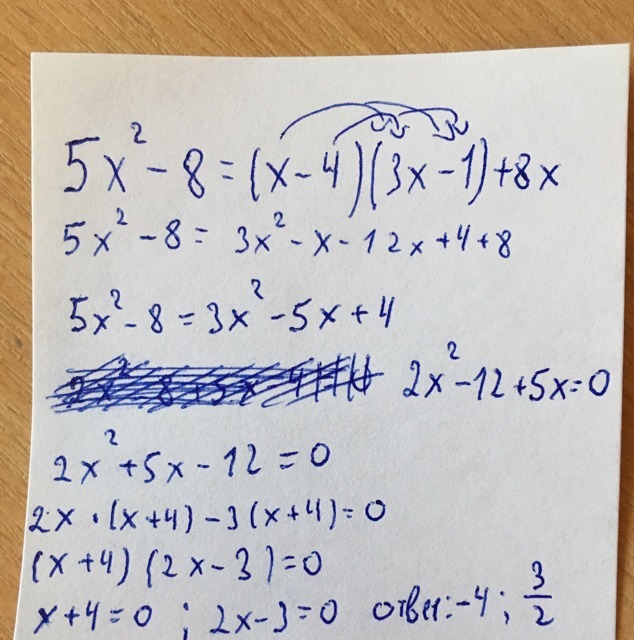 5x² - 8 = (x - 4)(3x - 1) + 8x
5x² - 8 = 3x² - x - 12x + 4 + 8
5x² - 8 = 3x² - 5x + 4
2x² - 12 + 5x = 0
2x² + 5x - 12 = 0
2x · (x + 4) - 3(x + 4) = 0
(x + 4)(2x - 3) = 0
x + 4 = 0 ; 2x - 3 = 0 ответ: -4; 3/2